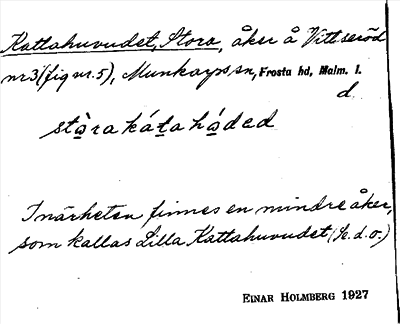 Kattahuvudet, Stora, åker å Vittseröd
nr 3 (fig nr. 5), Munkarps sn, Frosta hd, Malm. l.
d.
stɑ̀ra kát̲a hɑ́dəd
I närheten finnes en mindre åker,
som kallas Lilla Kattahuvudet (Se. d. o.)
EINAR HOLMBERG 1927